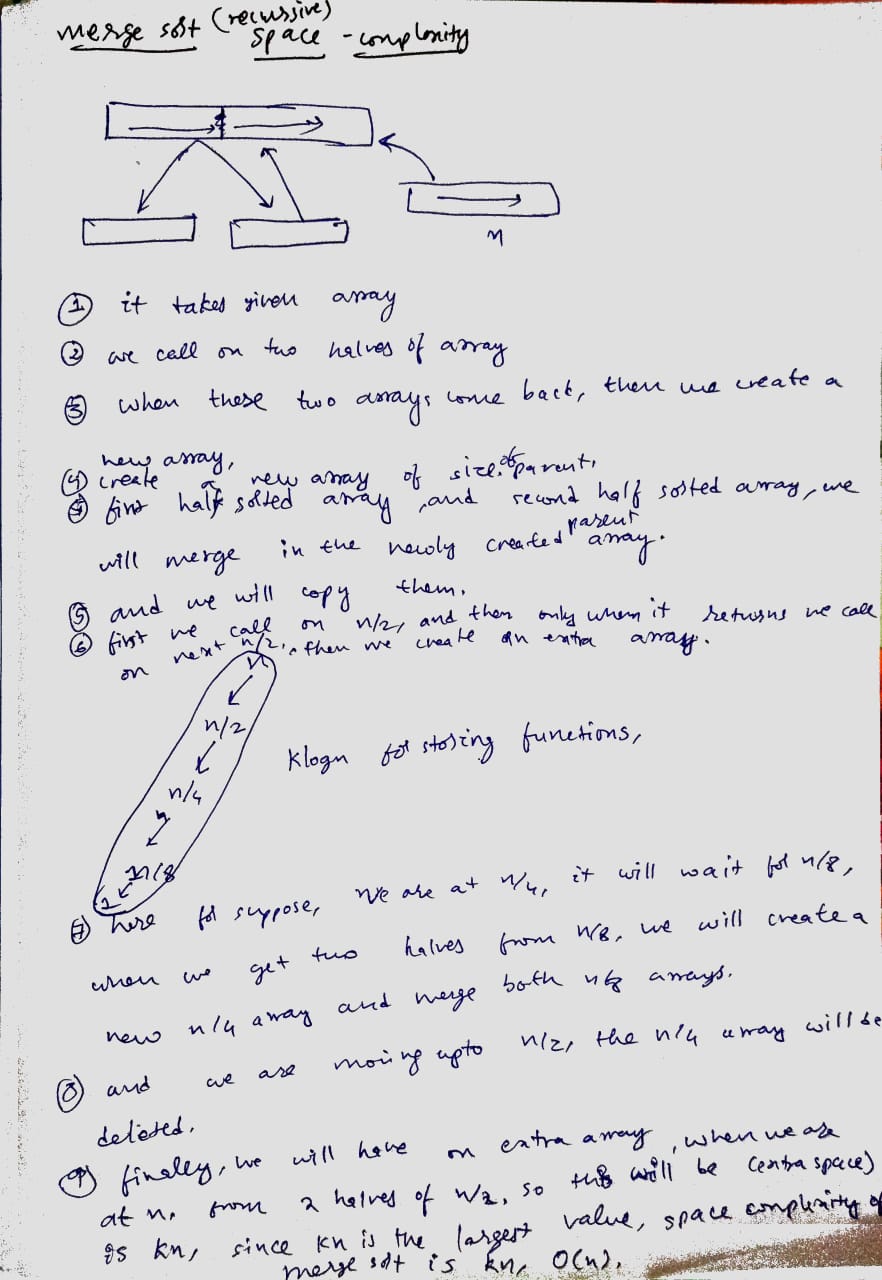 merge sort (recussive)
space - complexity
n
① it takes given array
② we call on two halves of array
③ when these two arrays come back, then we create a
new array,
④ create a new array of size of parent,
④ first half sorted array, and second half sorted array, we
will merge in the newly created parent array.
⑤ and we will copy them.
⑥ first we call on n/2, and then only when it returns we call
on next n/2, then we create an extra array.
n
n/2
klogn for storing functions,
n/4
n/8
1
⑦ here for suppose, we are at n/4, it will wait for n/8,
when we get two halves from n/8, we will create a
new n/4 array and merge both n/8 arrays.
⑧ and we are moving upto n/2, the n/4 array will be
deleted.
⑨ finally, we will have on extra array, when we are
at n, from 2 halves of n/2, so this will be (extra space)
is kn, since kn is the largest value, space complexity of
merge sort is kn, O(n).